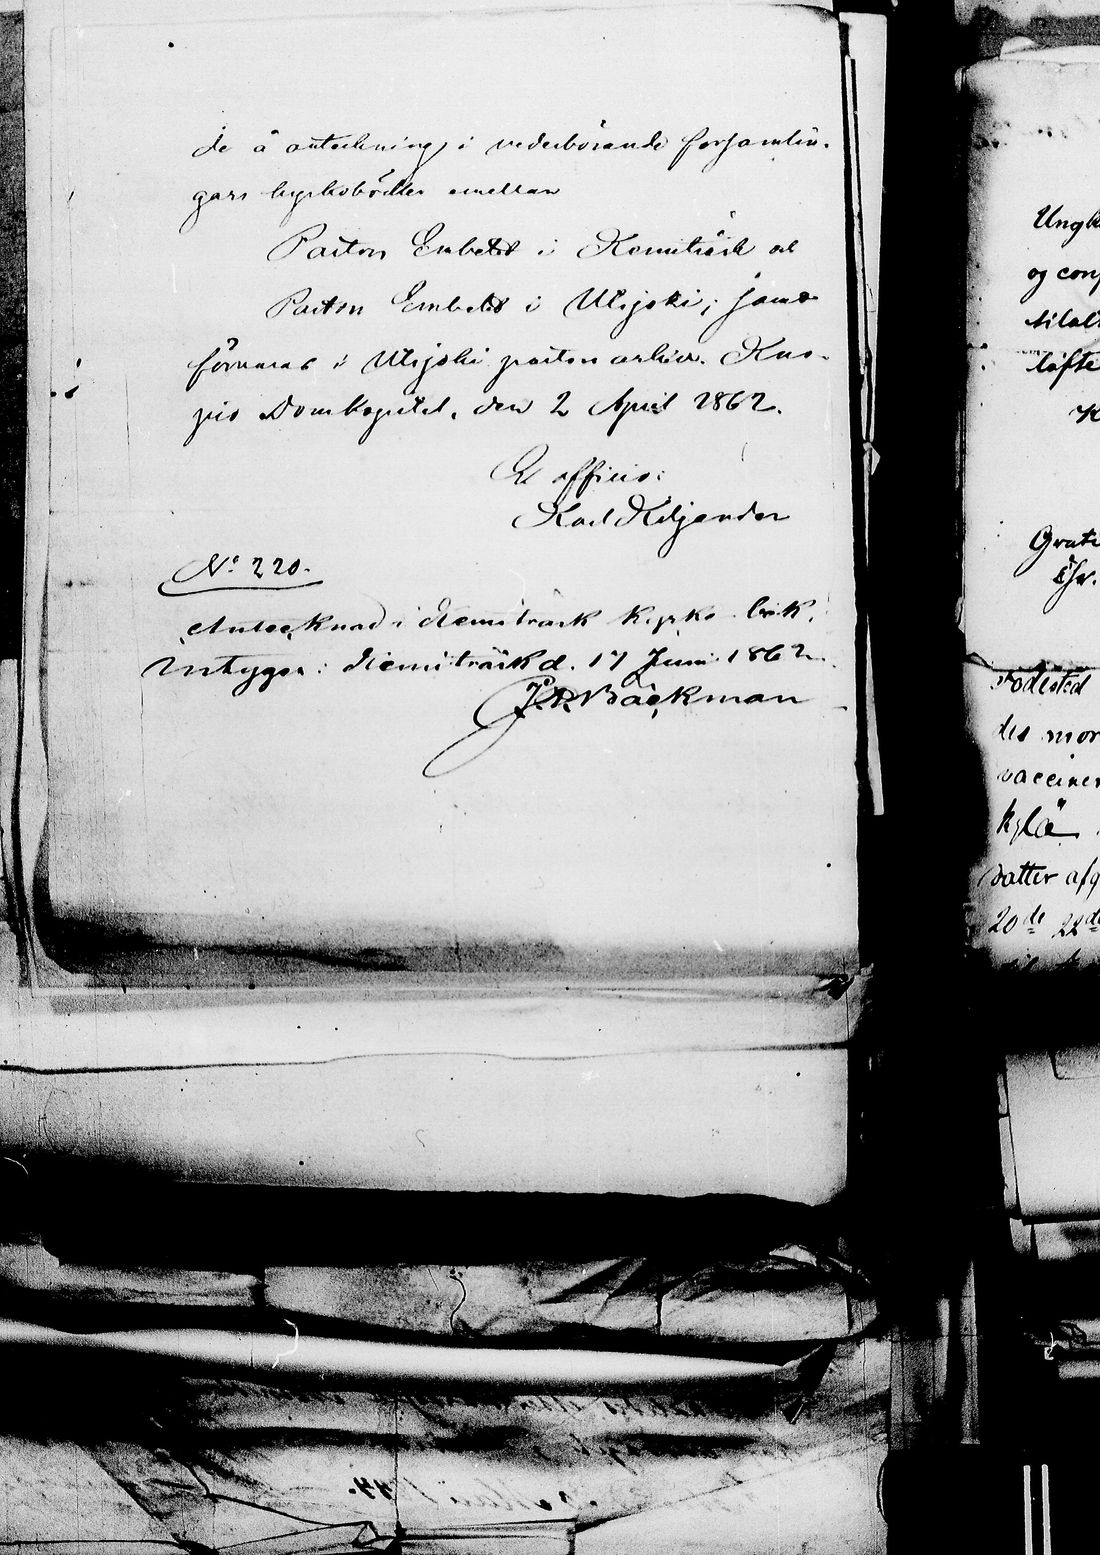 de å anteckning i vederbörande församlin-
gars kyrkoböcker emellan
Pastors Embetet i Kemiträsk och
Pastors Embetet i Utsjoki; samt
förvaras i Utsjoki pastors arkiv. Kuo-
pio Domkapitel, den 2 April 1862.
Ex officio:
Karl Kiljander
No 220.
Antecknad i Kemiträsk kyrko bok,
intygar: Kemiträsk d. 17 Juni 1862.
Bäckman
Ungk
og conf
tilals
løfte
K
Grate
Chr.
Fødested
des mor
vaccines
kylä
datter afg
20de 22de